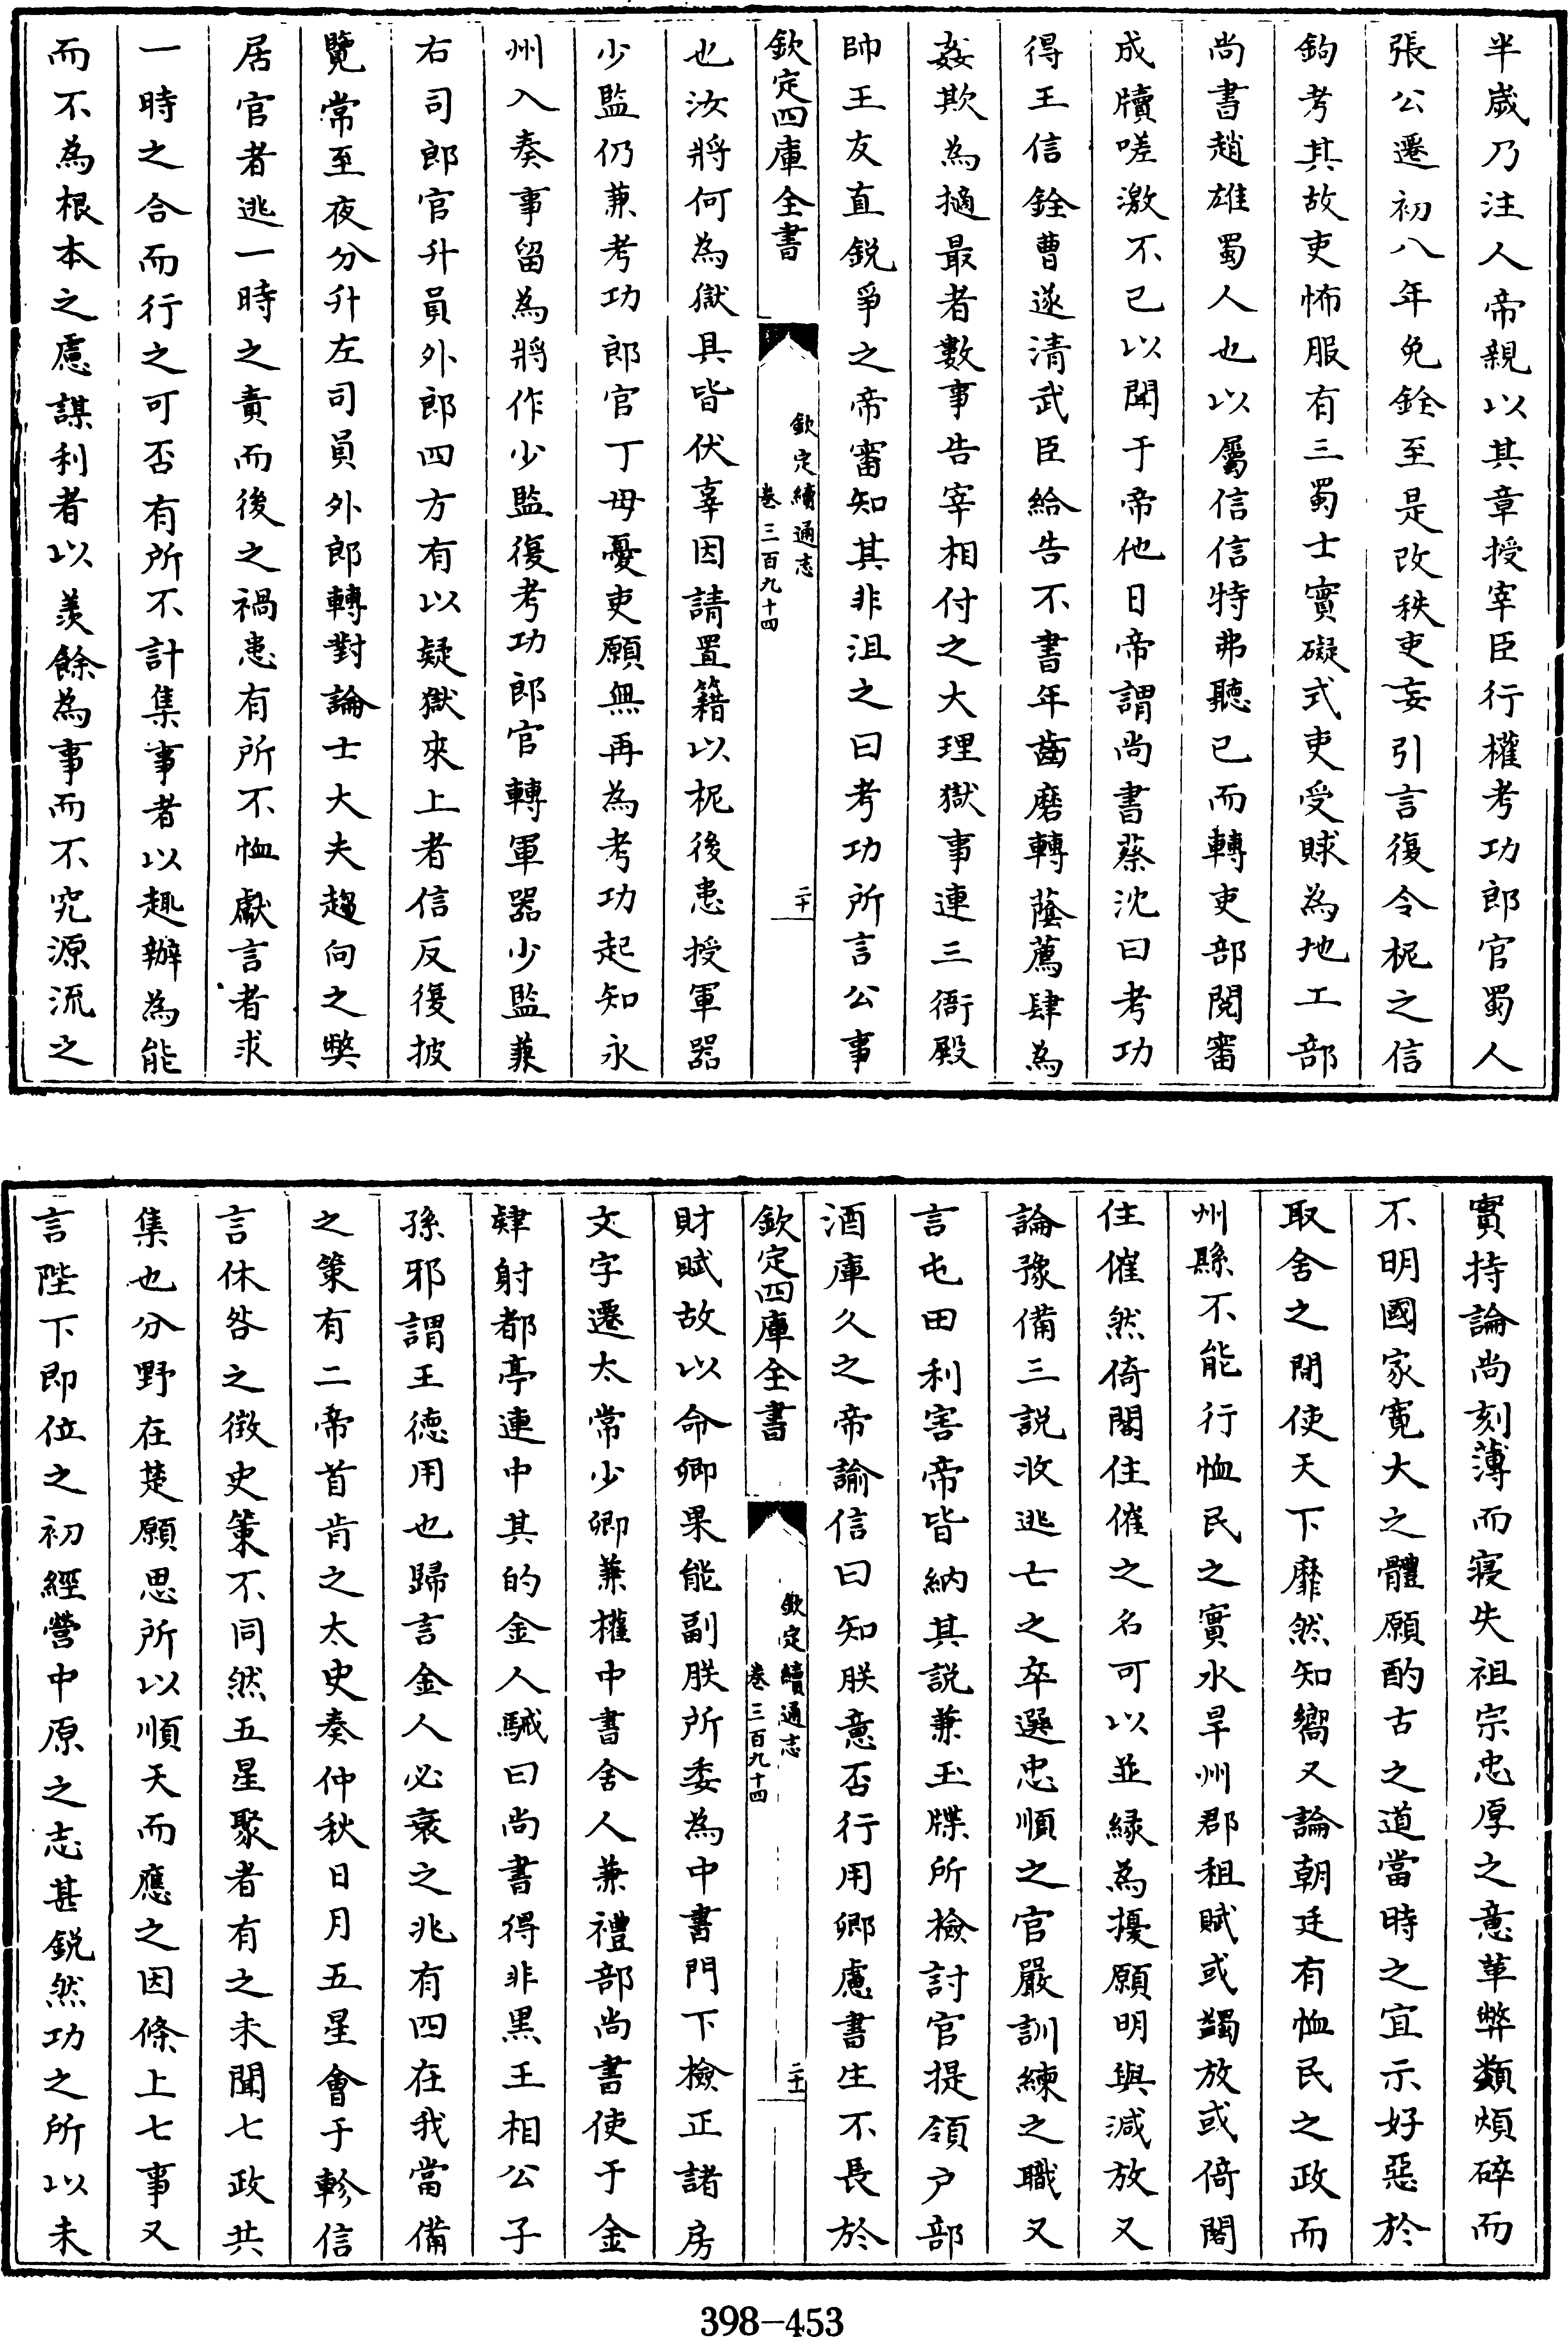 半歲乃注人帝親以其章授宰臣行權考功郎官蜀人
張公遷初八年免銓至是改秩吏妄引言復令柅之信
鉤考其故吏怖服有三蜀士實礙式吏受賕為地工部
尚書趙雄蜀人也以屬信信特弗聽已而轉吏部閱審
成牘嗟激不已以聞于帝他日帝謂尚書蔡沈曰考功
得王信銓曹遂清武臣給告不書年齒磨轉蔭薦肆為
姦欺為擿最者數事告宰相付之大理獄事連三衙殿
帥王友直鋭爭之帝審知其非沮之曰考功所言公事
欽定四庫全書
欽定續通志
卷三百九十四
二十
也汝將何為獄具皆伏辜因請置籍以柅後患授軍器
少監仍兼考功郎官丁母憂吏願無再為考功起知永
州入奏事留為將作少監復考功郎官轉軍器少監兼
右司郎官升員外郎四方有以疑獄來上者信反復披
覽常至夜分升左司員外郎轉對論士大夫趨向之獘
居官者逃一時之責而後之禍患有所不恤獻言者求
一時之合而行之可否有所不計集事者以趣辦為能
而不為根本之慮謀利者以羨餘為事而不究源流之
實持論尚刻薄而寖失祖宗忠厚之意革弊類煩碎而
不明國家寛大之體願酌古之道當時之宜示好惡於
取舍之間使天下靡然知嚮又論朝廷有恤民之政而
州縣不能行恤民之實水旱州郡租賦或蠲放或倚閣
住催然倚閣住催之名可以並緣為擾願明與減放又
論豫備三説收逃亡之卒選忠順之官嚴訓練之職又
言屯田利害帝皆納其説兼玉牒所檢討官提領户部
酒庫久之帝諭信曰知朕意否行用卿慮書生不長於
欽定四庫全書
欽定續通志
卷三百九十四
二十一
財賦故以命卿果能副朕所委為中書門下檢正諸房
文字遷太常少卿兼權中書舍人兼禮部尚書使于金
肄射都亭連中其的金人駴曰尚書得非黑王相公子
孫邪謂王德用也歸言金人必衰之兆有四在我當備
之策有二帝首肯之太史奏仲秋日月五星會于軫信
言休咎之徴史策不同然五星聚者有之未聞七政共
集也分野在楚願思所以順天而應之因條上七事又
言陛下即位之初經營中原之志甚鋭然功之所以未
398-453